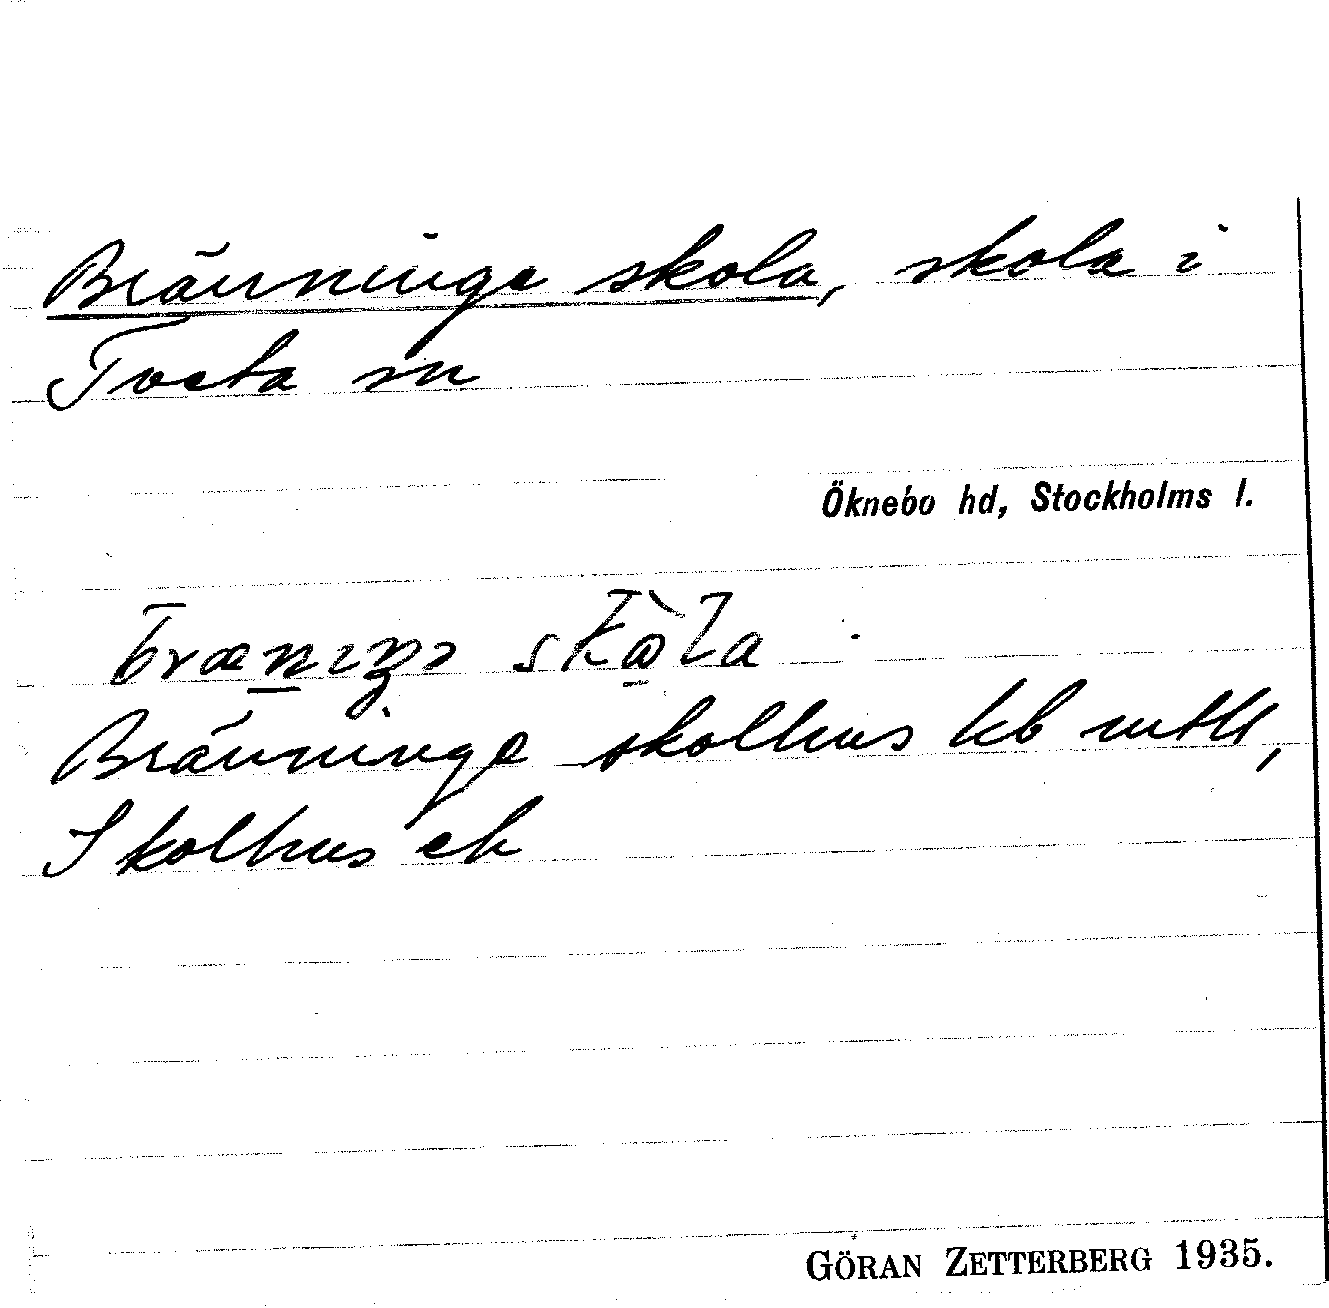 Bränninge skola, skola i
Tveta sn
Öknebo hd, Stockholms l.
skåla
Bränninge skolhus kb mtll,
Skolhus ek
GÖRAN ZETTERBERG 1935.